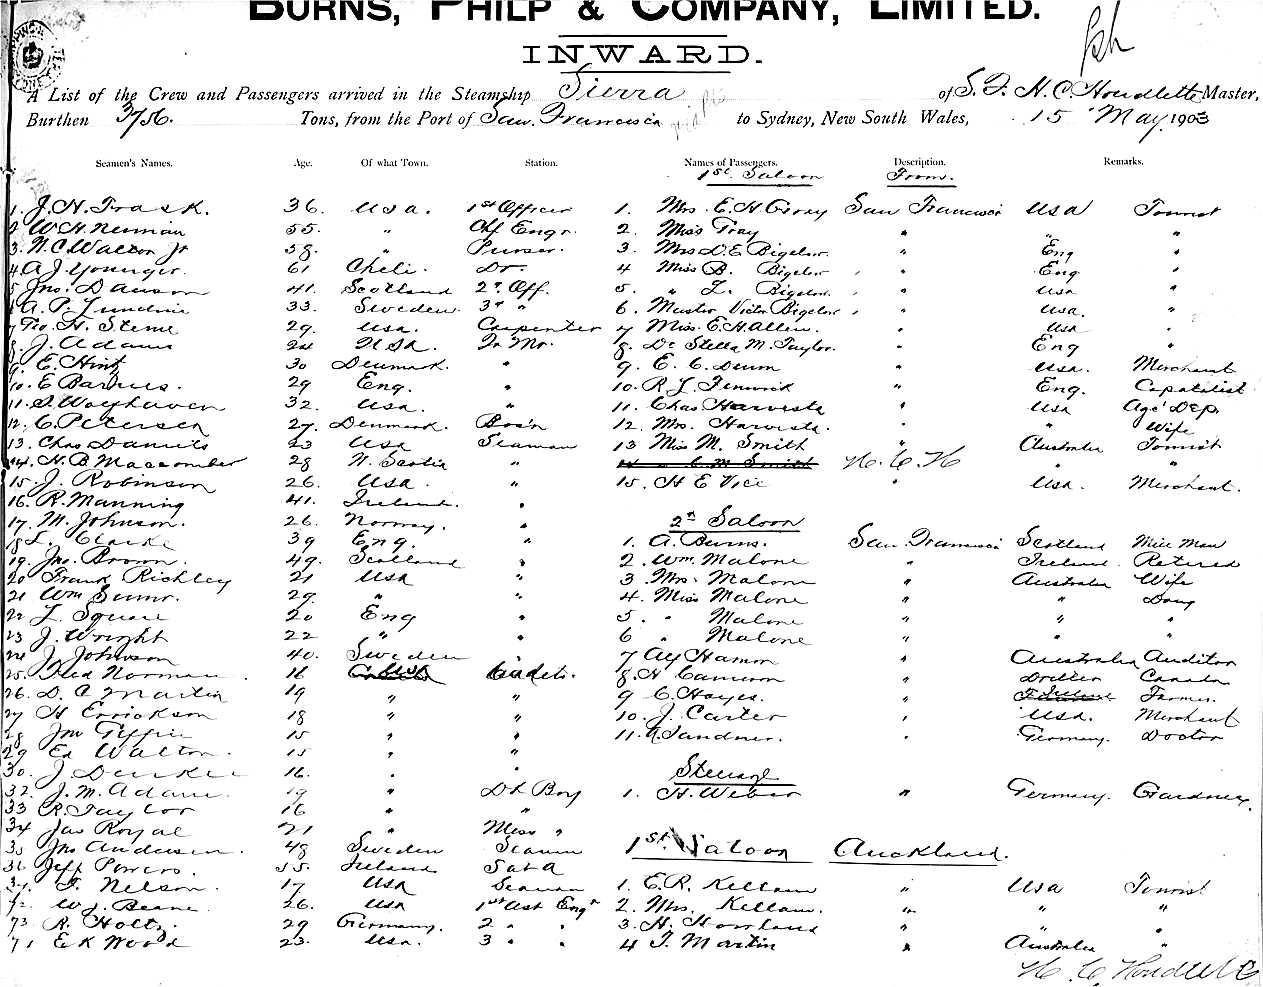 BURNS, PHILP & COMPANY, LIMITED.
INWARD.
A List of the Crew and Passengers arrived in the Steamship Sierra of S. F. H. C. Houdlette Master,
Burthen 3756. Tons, from the Port of San Francisco to Sydney, New South Wales, 15 May 1903
Seamen's Names. Age. Of what Town. Station. Names of Passengers. Description. Remarks.
1st Saloon From.
1. J. H. Trask. 36. USA. 1st Officer 1. Mrs. E. H. Gray San Francisco USA Tourist
2 W H. Neuman 55. " Chf Engr. 2. Miss Gray " " "
3. N. C. Walton Jr 38. " Purser. 3. Mrs D. E. Bigelow " Eng "
4 A. J. Younger. 61 Chili. Dr. 4 Miss B. Bigelow " Eng "
5 Jno. Dawson 41. Scotland 2d Off. 5. " L. Bigelow " USA "
A. P. Lundin 33. Sweden. 3d " 6. Master Victor Bigelow " USA. "
7 H. Steine 29. USA. Carpenter 7 Miss. E. H. Allen. " USA "
8. J. Adams 24 USA. Qr Mr. 8. Dr Stella M. Taylor. " Eng "
9. E. Hintz 30 Denmark. " 9. E. C. Drum " USA. Merchant
10. E Barnes. 29 Eng. " 10. R J. Fenwick " Eng. Capatilist
11. 32. USA. " 11. Chas Harvests " USA Age' Dep.
12. C. Petersen 27. Denmark. Bos'n 12. Mrs. Harvests. " " Wife
13. Chas Daniels 23 USA Seaman 13 Miss M. Smith " Australia Tourist
14. H. B Maccomber 28 N. Scotia " 14 " C. M. Smith H. C. H " "
15. J. Robinson 26. USA. " 15. H E Vice " USA. Merchant.
16. R. Manning 41. Ireland. "
17. M. Johnson. 26. Norway. " 2nd Saloon
18 L. Clarke 39 Eng. " 1. A. Burns. San Francisco Scotland Mill Man
19. Jno. Brown. 49. Scotland " 2. Wm. Malone " Ireland. Retired
20 Frank Richley 21 USA " 3. Mrs. Malone " Australia Wife
21 Wm 29. " " 4. Miss Malone " " Daug
22 L. Squire 20 Eng " 5. " Malone " " "
23 J. Wright 22 " " 6 " Malone " " "
24 J. Johnson 40. Sweden " 7 Hamon " Australia Auditor
25. Fred Norman 16 USA Cadet. 8. H Cameron " Driller Canada
26. D. C Martin 19 " " 9 C. Hayes. " Ireland Farmer.
27 H Errickson 18 " " 10. J. Carter " USA. Merchant
28 Jno Tiffin 15 " " 11. Sandner. " Germany. Doctor
29 Ed Walton. 15 " "
30. J. 16. " " Steerage
32. J. M. Adams 19 " Dk Boy 1. H. Weber " Germany. Gardner.
33 R. Taylor 16 " "
34 Jas Royal 21 " Mess "
35 Jno Andersen. 48 Sweden Seaman 1st Saloon Auckland.
36 Jeff Powers. 55. Ireland
T. Nelson. 17 USA Seaman 1. E. R. Kellam " USA Tourist
72. W. J. Beane. 26. USA 1st Ast Engr 2. Mrs. Kellam. " " "
73 R. Holtz 29 Germany. 2 " " 3. H. Howland " " "
71 E K Wood 23. USA. 3 " " 4 T. Martin " Australia "
H. C. Houdlette